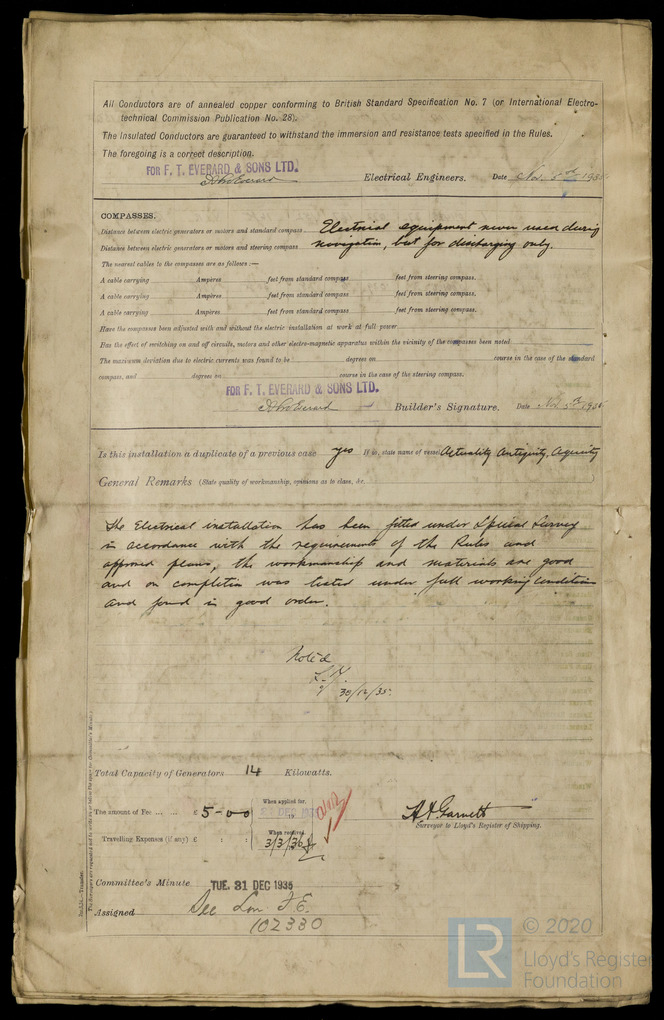 All Conductors are of annealed copper conforming to British Standard Specification No. 7 (or International Electro-
technical Commission Publication No. 28).
The Insulated Conductors are guaranteed to withstand the immersion and resistance tests specified in the Rules.
The foregoing is a correct description.
FOR F. T. EVERARD & SONS LTD.
Electrical Engineers. Date Nov 193
COMPASSES.
Distance between electric generators or motors and standard compass Electrical equipment never used during
Distance between electric generators or motors and steering compass navigation, but for discharging only.
The nearest cables to the compasses are as follows:—
A cable carrying Ampères feet from standard compass feet from steering compass.
A cable carrying Ampères feet from standard compass feet from steering compass.
A cable carrying Ampères feet from standard compass feet from steering compass.
Have the compasses been adjusted with and without the electric installation at work at full power
Has the effect of switching on and off circuits, motors and other electro-magnetic apparatus within the vicinity of the compasses been noted
The maximum deviation due to electric currents was found to be degrees on course in the case of the standard
compass, and degrees on course in the case of the steering compass.
FOR F. T. EVERARD & SONS LTD.
Builder's Signature. Date Nov 193
Is this installation a duplicate of a previous case yes If so, state name of vessel Actuality Antiquity, Aquiety
General Remarks (State quality of workmanship, opinions as to class, &c.)
The Electrical installation has been fitted under Special Survey
in accordance with the requirements of the Rules and
approved plans, the workmanship and materials are good
and on completion was tested under full working conditions
and found in good order.
Noted
30/12/35.
Total Capacity of Generators 14 Kilowatts.
The amount of Fee £ 5-00
When applied for,
DEC 193
Travelling Expenses (if any) £ : :
When received,
3/3/36
Surveyor to Lloyd's Register of Shipping.
Committee's Minute TUE. 31 DEC 1935
Assigned See Lon. F.E.
102380
© 2020
LR
Lloyd's Register
Foundation